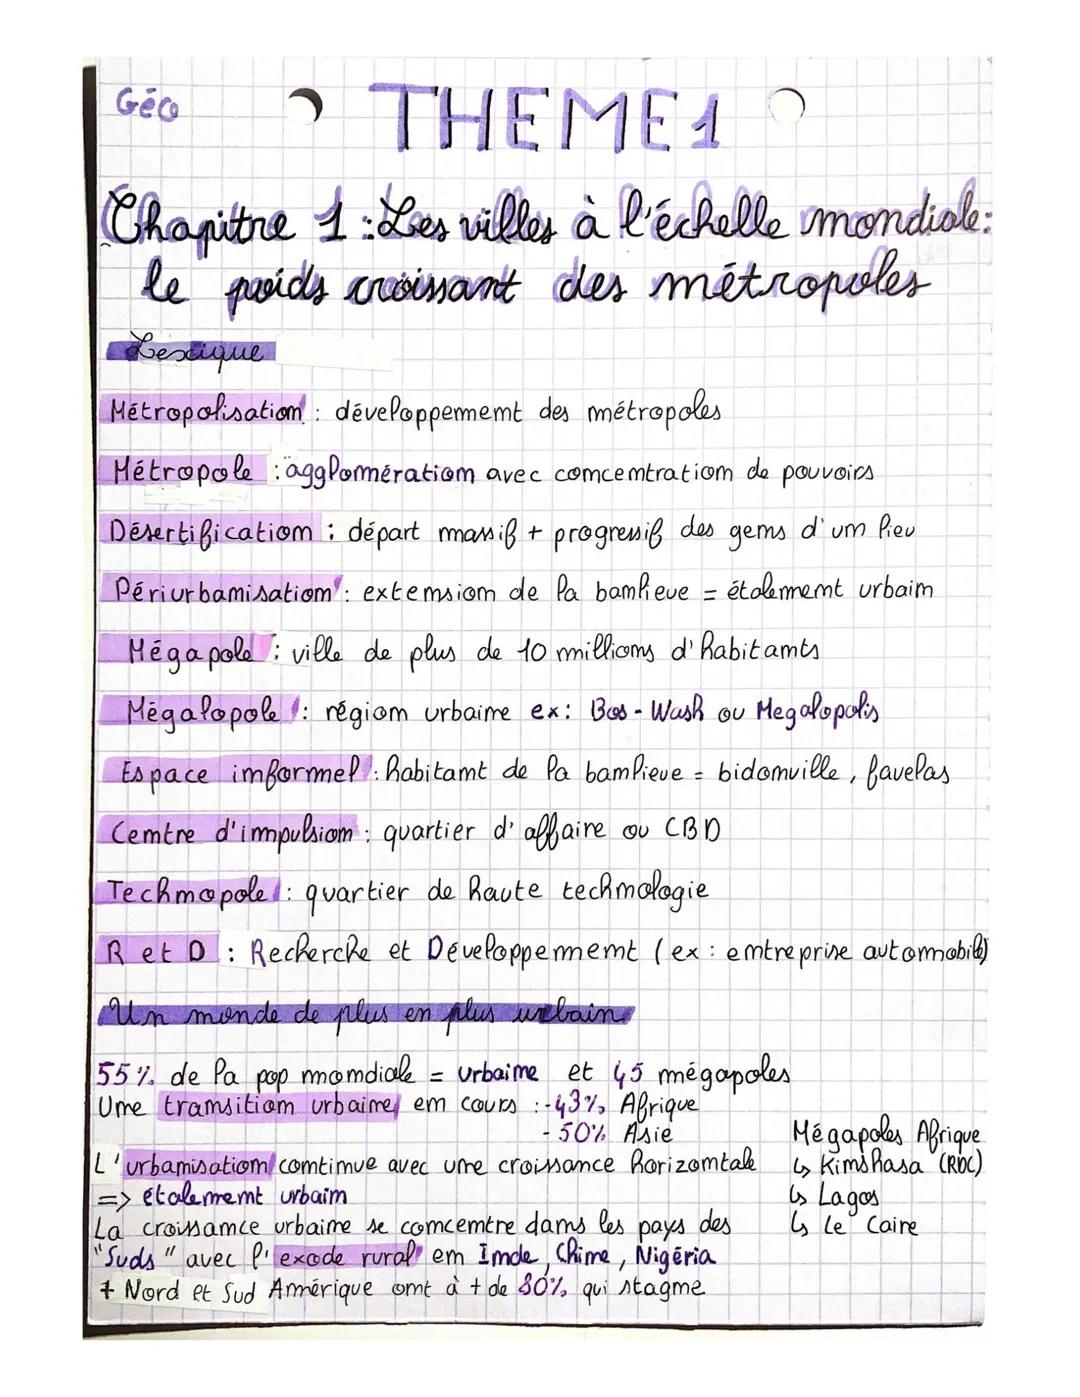 Géo
THEME 1
Chapitre 1 : Les villes à l'échelle mondiale:
le poids croissant des métropoles
Lexique
Métropolisation : développement des métropoles
Métropole : agglomération avec concentration de pouvoirs
Désertification : départ massif + progressif des gens d'un lieu
Périurbanisation : extension de la banlieue = étalement urbain
Mégapole : ville de plus de 10 millions d'habitants
Mégalopole : région urbaine ex : Bos-Wash ou Megalopolis
Espace informel : habitant de la banlieue = bidonville, favelas
Centre d'impulsion : quartier d'affaire ou CBD
Technopole : quartier de haute technologie
R et D : Recherche et Développement (ex : entreprise automobile)
Un monde de plus en plus urbain
55% de la pop mondiale = urbaine et 45 mégapoles
Une transition urbaine en cours : - 43% Afrique
- 50% Asie
L'urbanisation continue avec une croissance horizontale
=> étalement urbain
La croissance urbaine se concentre dans les pays des
"Suds" avec l'exode rural en Inde, Chine, Nigéria
+ Nord et Sud Amérique ont à + de 80% qui stagne
Mégapoles Afrique
↳ Kinshasa (RDC)
↳ Lagos
↳ Le Caire